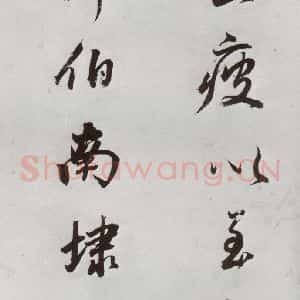 瘦以至
伯南埭
Shufawang.CN